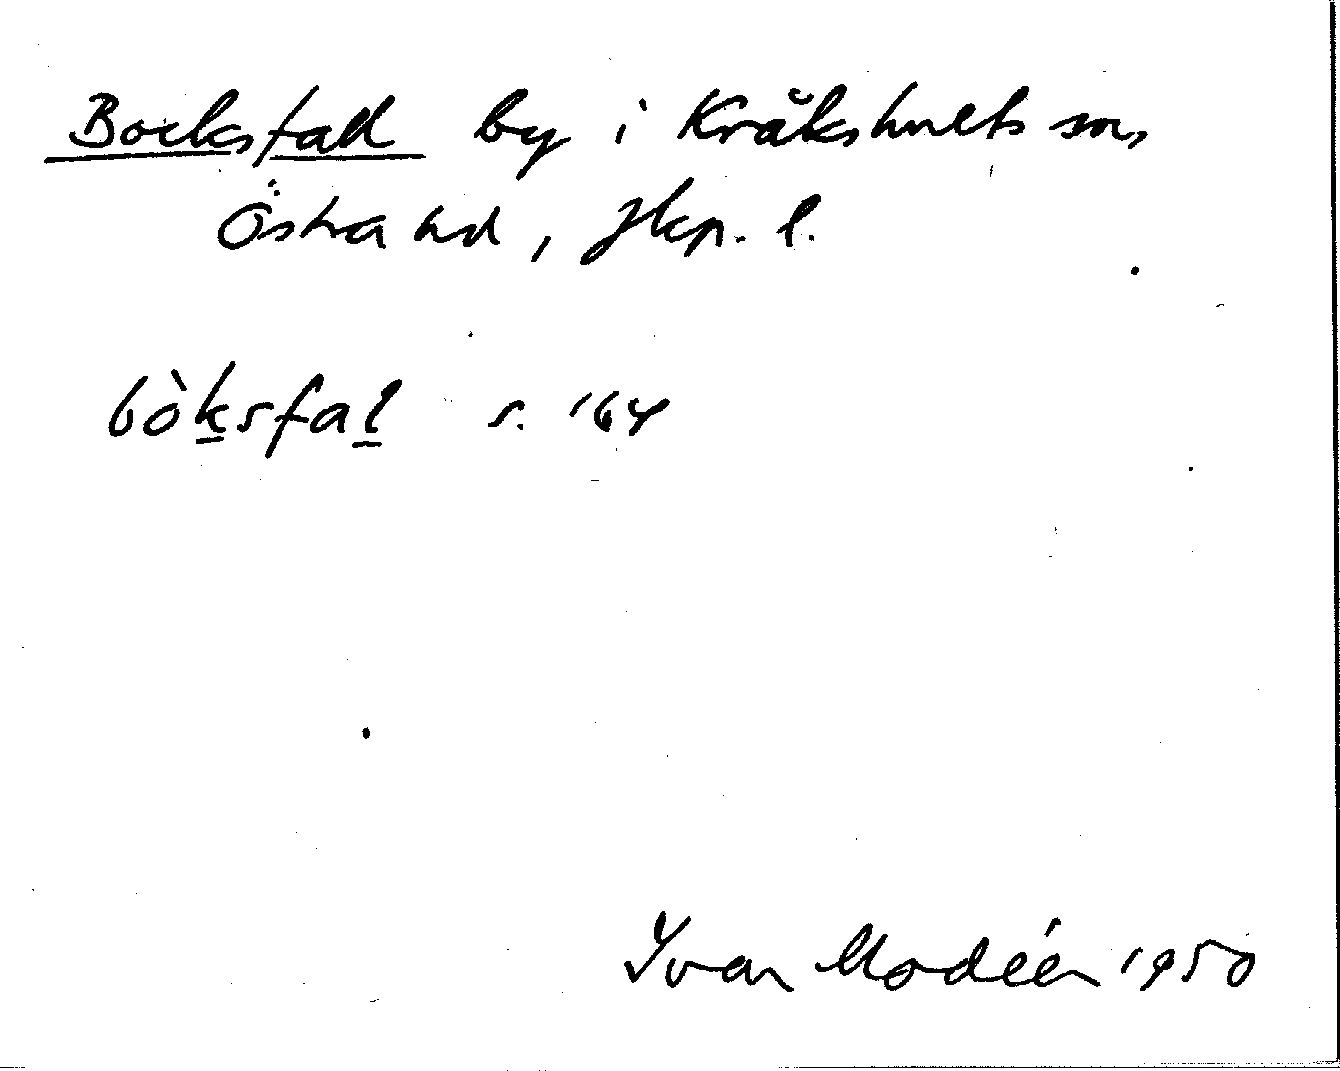 Bocksfall by i Kråkshults sn,
Östra hd, Jkp. l.
bòksfal s. '64
Yvar Modéer 1950